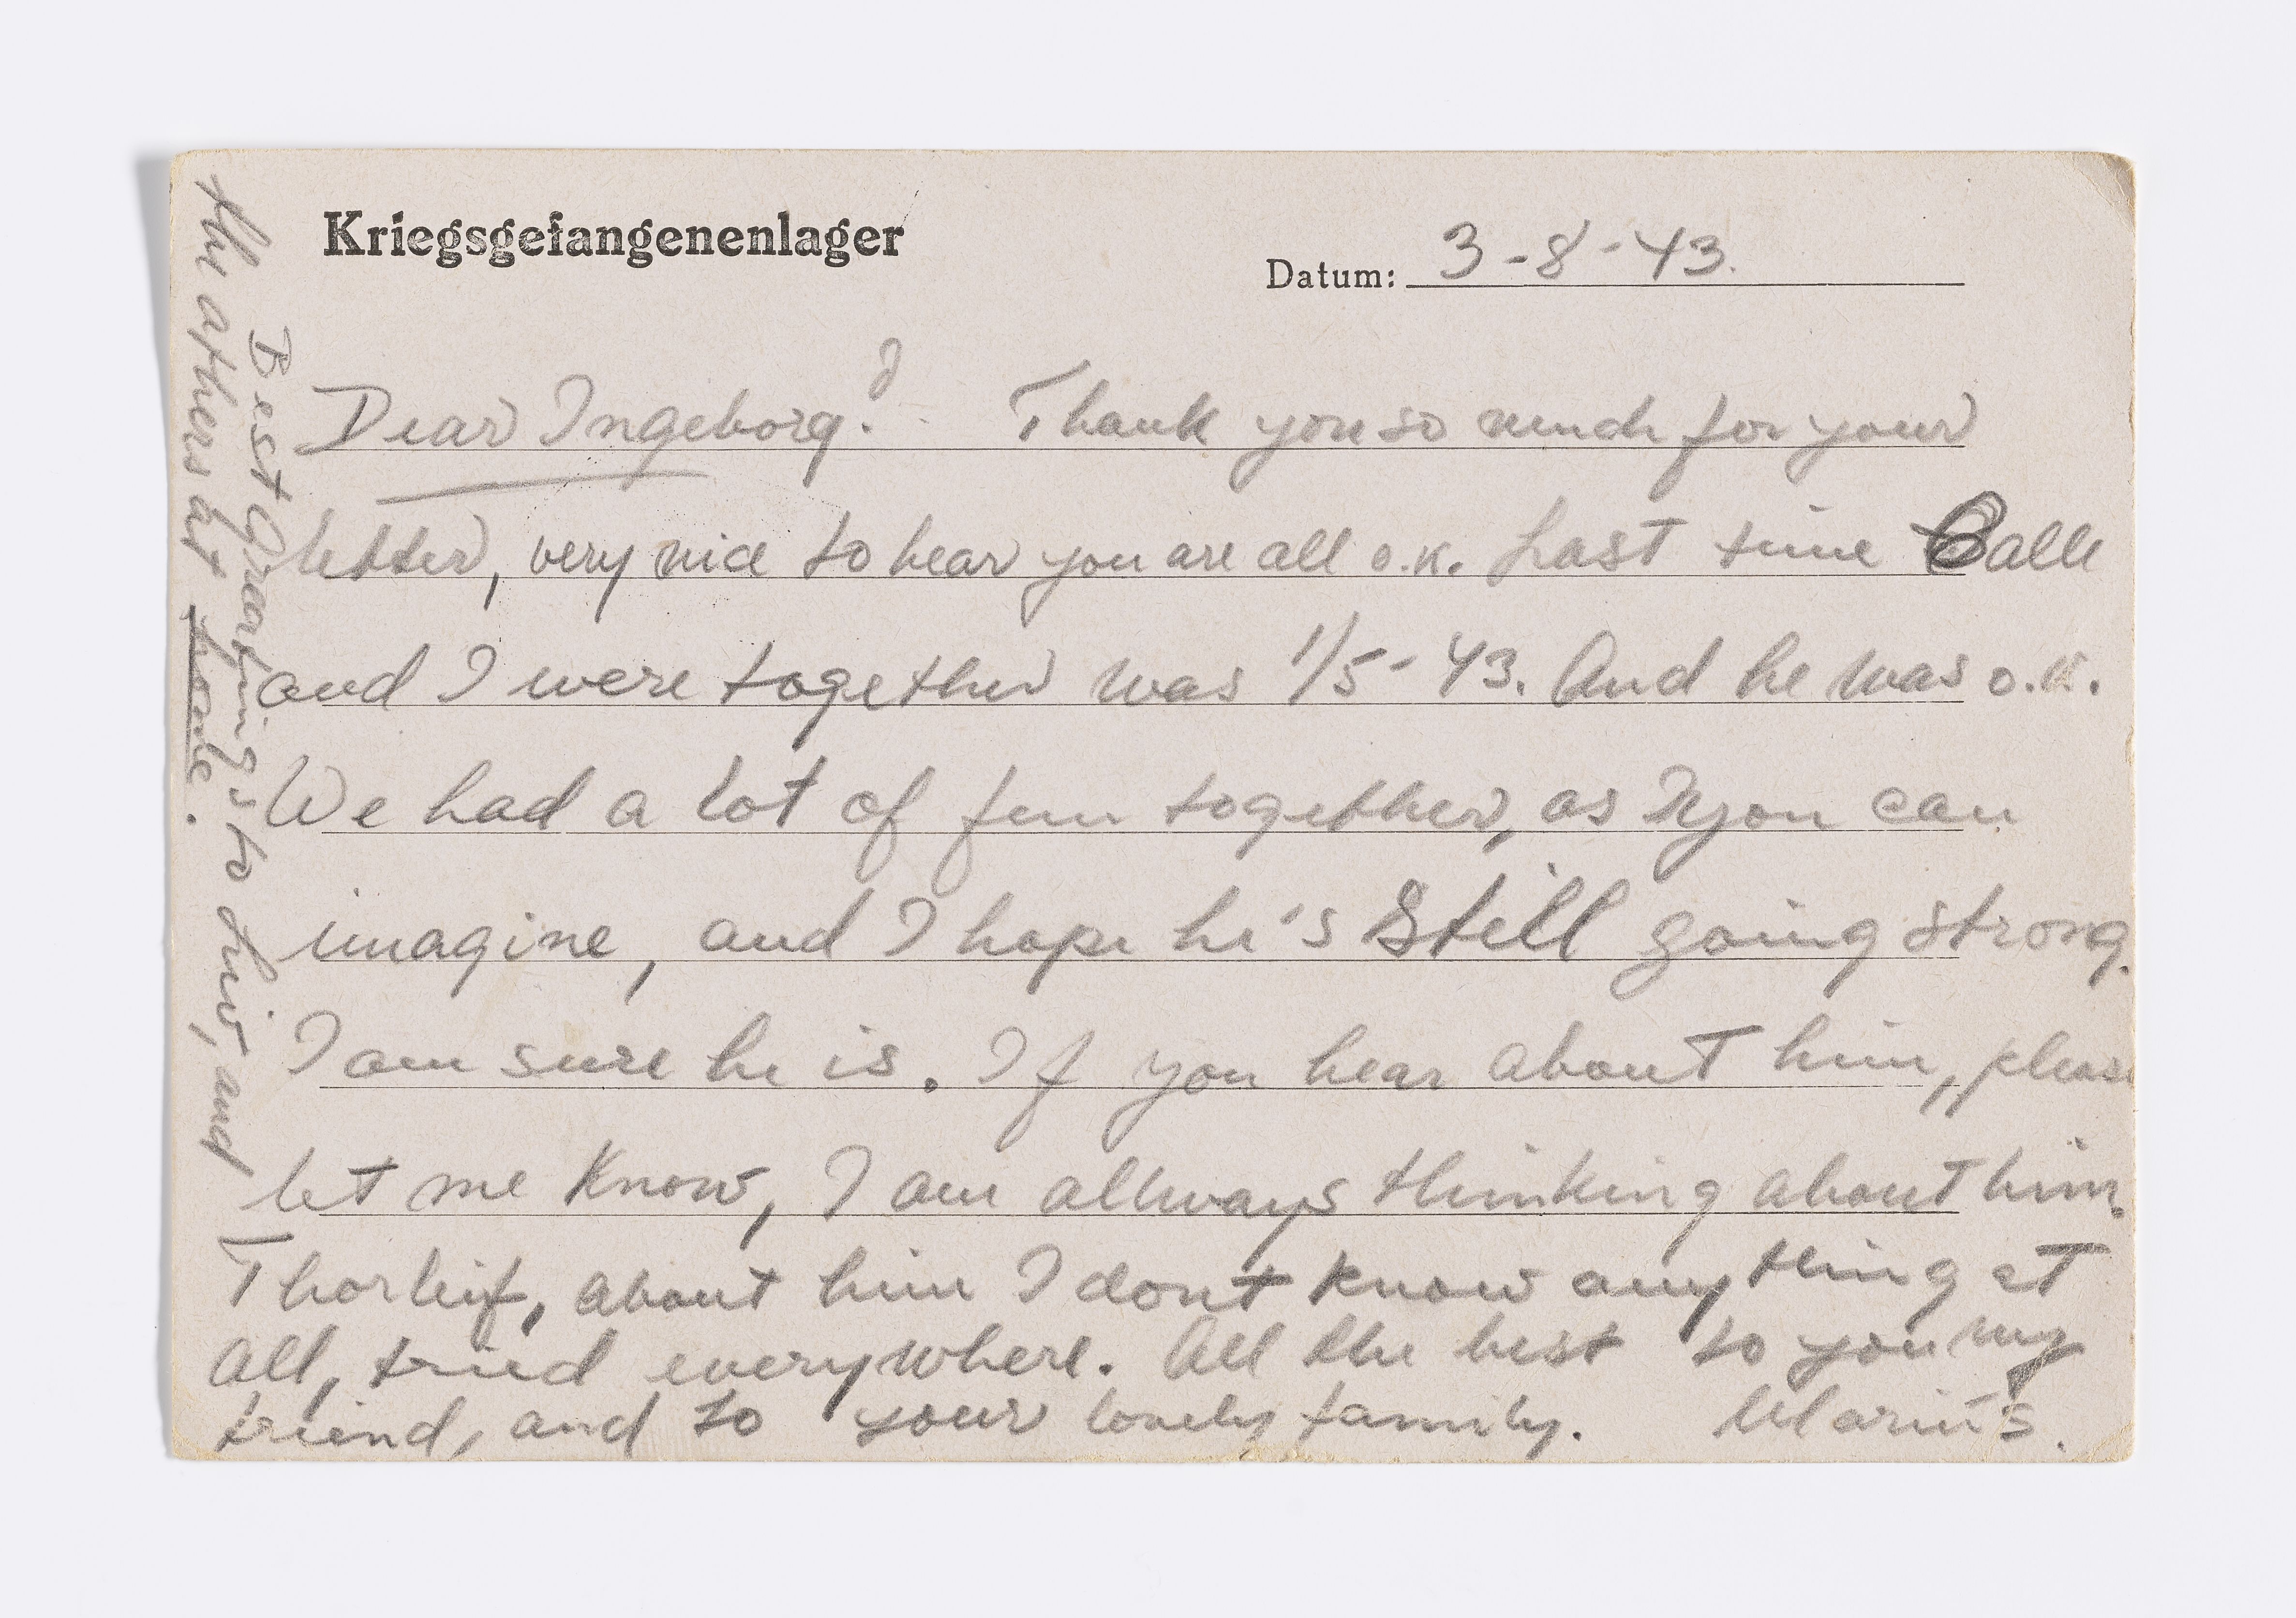 Kriegsgefangenenlager
Datum: 3-8-43.
Dear Ingeborg! Thank you so much for your
letter, very nice to hear you are all o.k. Last time Calle
and I were together was 1/5-43. And he was o.k.
We had a lot of fun together, as you can
imagine, and I hope he's still going strong.
I am sure he is. If you hear about him, please
let me know, I am allways thinking about him.
Thorleif, about him I dont know anything at
all, tried everywhere. All the best to you my
friend, and to your lovely family. Marius.
Best Greatings to him, and
the others at home.